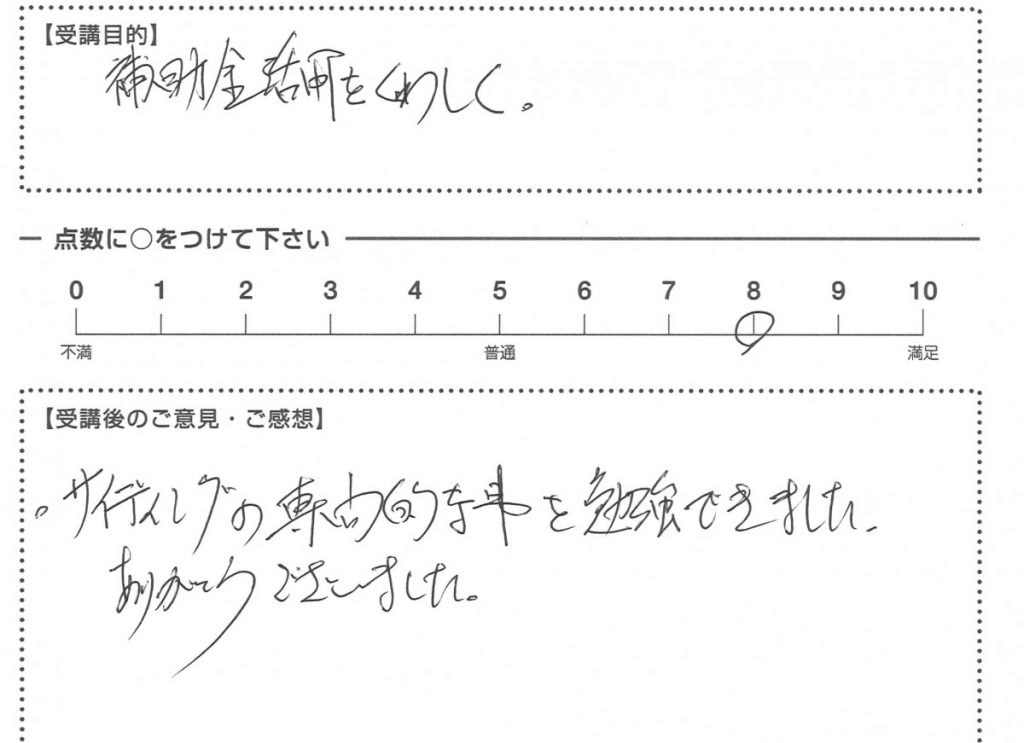 【受講目的】
補助金活用をくわしく。
点数に○をつけて下さい
0 1 2 3 4 5 6 7 8 9 10
不満 普通 満足
【受講後のご意見・ご感想】
。サイディングの専門的な事を勉強できました。
ありがとうございました。